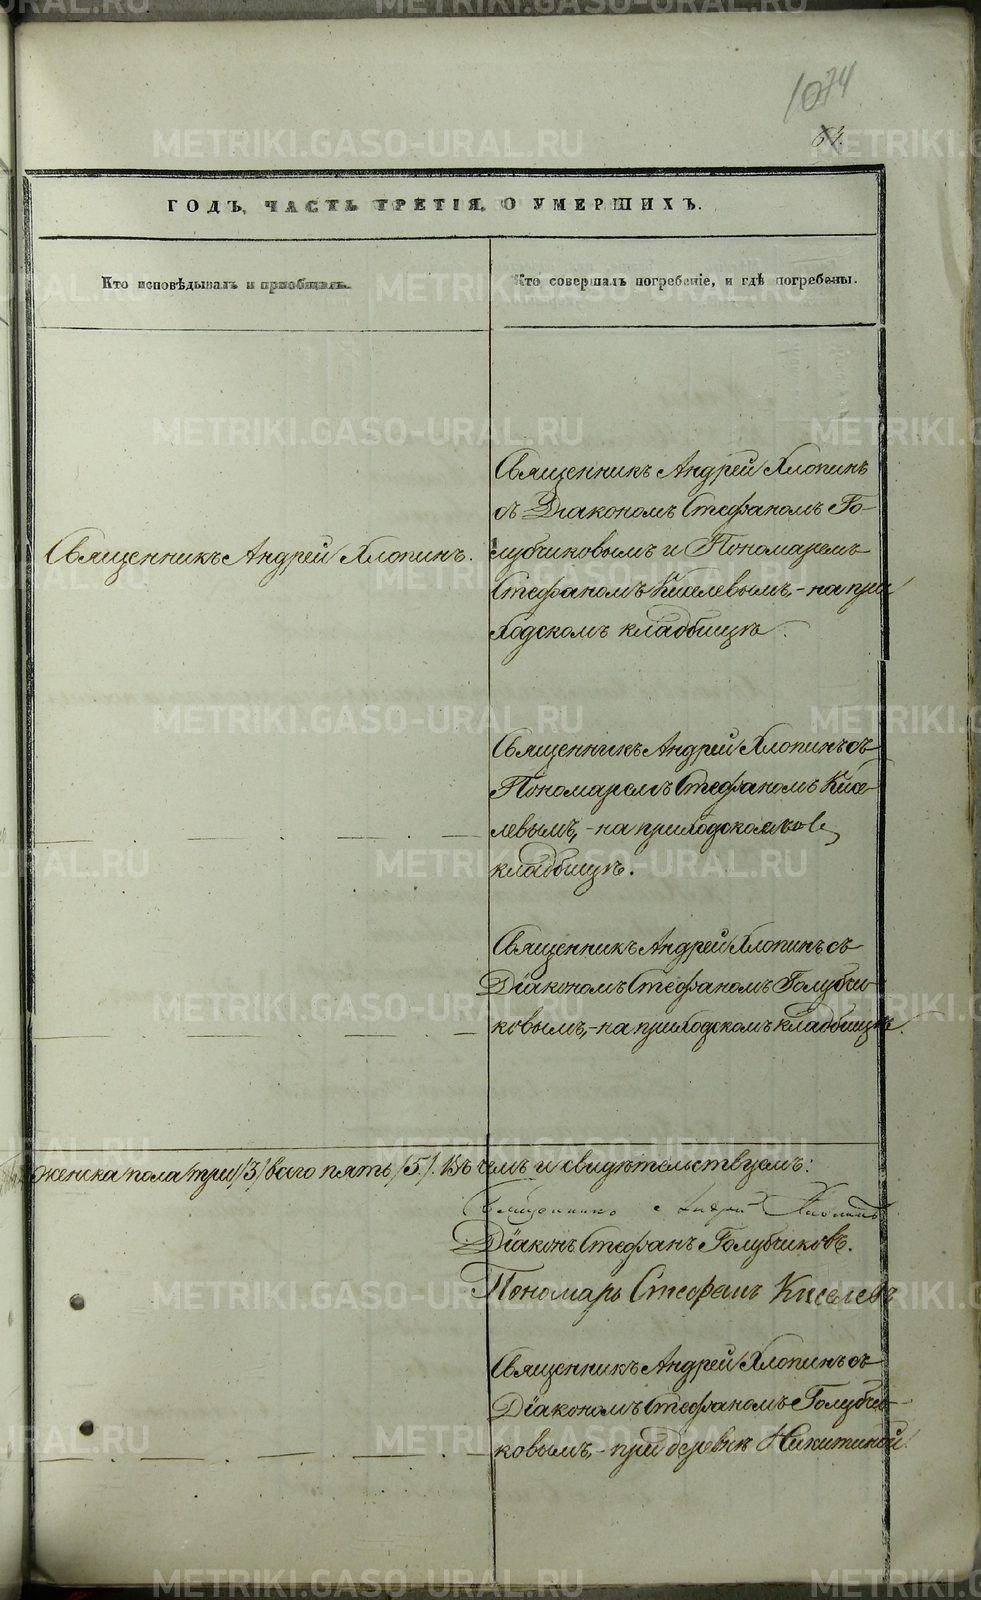 1074
64.
ГОДЪ, ЧАСТЬ ТРЕТІЯ, О УМЕРШИХЪ.
Кто исповѣдывалъ и пріобщалъ.
Кто совершалъ погребеніе, и гдѣ погребены.
Священникъ Андрей Хлопинъ.
Священникъ Андрей Хлопинъ
съ Діакономъ Стефаномъ Го-
лубчиковымъ и Пономаремъ
Стефаномъ Киселевымъ, - на при
ходскомъ кладбищѣ.
Священникъ Андрей Хлопинъ съ
Пономаремъ Стефаномъ Кисе-
левымъ, - на приходскомъ
кладбищѣ.
Священникъ Андрей Хлопинъ съ
Діакономъ Стефаномъ Голубчи-
ковымъ, - на приходскомъ кладбищѣ.
женска пола три /3/ всего пять /5/. Въ чемъ и свидѣтельствуемъ:
Священникъ Андрей Хлопинъ
Діаконъ Стефанъ Голубчиковъ.
Пономарь Стефанъ Киселевъ
Священникъ Андрей Хлопинъ съ
Діакономъ Стефаномъ Голубчи-
ковымъ, - при деревнѣ Никитиной.
METRIKI.GASO-URAL.RU